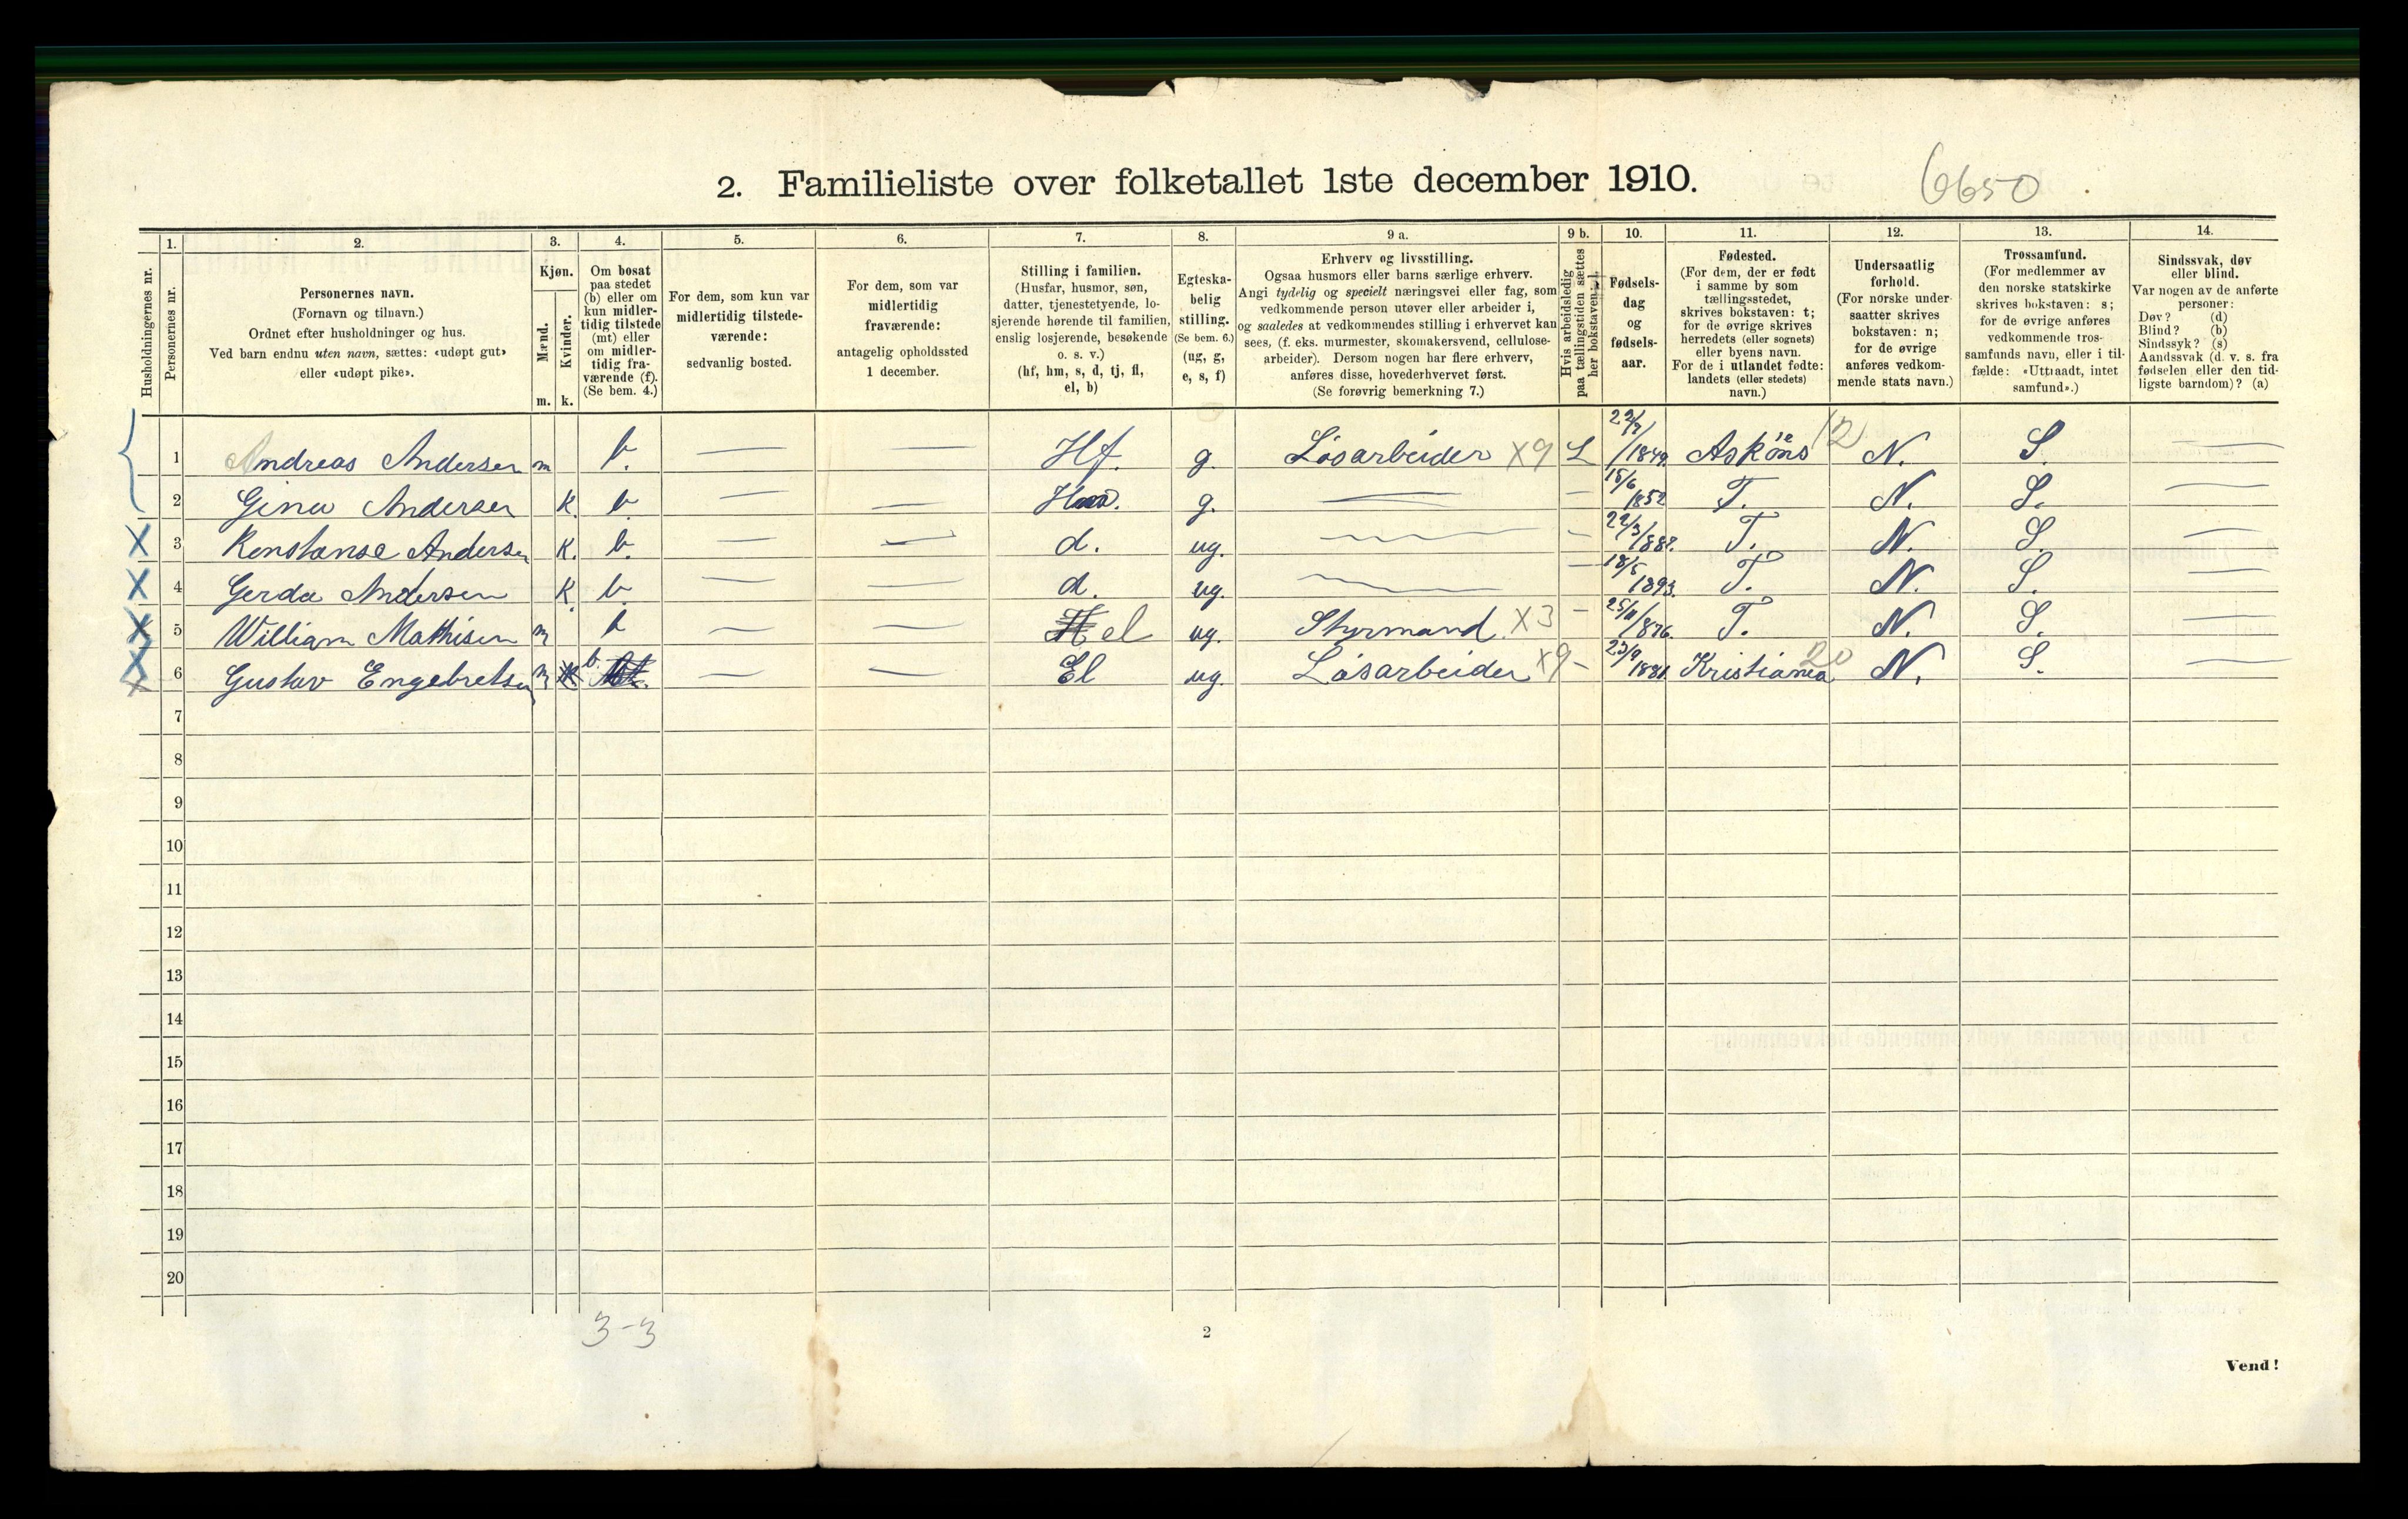 2. Familieliste over folketallet 1ste december 1910.
6650
Husholdningernes nr.
1.
Personernes nr.
2.
Personernes navn.
(Fornavn og tilnavn.)
Ordnet efter husholdninger og hus.
Ved barn endnu uten navn, sættes: «udøpt gut»
eller «udøpt pike».
3.
Kjøn.
Mænd.
Kvinder.
m. k.
4.
Om bosat
paa stedet
(b) eller om
kun midler-
tidig tilstede
(mt) eller
om midler-
tidig fra-
værende (f).
(Se bem. 4.)
5.
For dem, som kun var
midlertidig tilstede-
værende:
sedvanlig bosted.
6.
For dem, som var
midlertidig
fraværende:
antagelig opholdssted
1 december.
7.
Stilling i familien.
(Husfar, husmor, søn,
datter, tjenestetyende, lo-
sjerende hørende til familien,
enslig losjerende, besøkende
o. s. v.)
(hf, hm, s, d, tj, fl,
el, b)
8.
Egteska-
belig
stilling.
(Se bem. 6.)
(ug, g,
e, s, f)
9 a.
Erhverv og livsstilling.
Ogsaa husmors eller barns særlige erhverv.
Angi tydelig og specielt næringsvei eller fag, som
vedkommende person utøver eller arbeider i,
og saaledes at vedkommendes stilling i erhvervet kan
sees, (f. eks. murmester, skomakersvend, cellulose-
arbeider). Dersom nogen har flere erhverv,
anføres disse, hovederhvervet først.
(Se forøvrig bemerkning 7.)
9 b.
Hvis arbeidsledig
paa tællingstiden sættes
her bokstaven: l.
10.
Fødsels-
dag
og
fødsels-
aar.
11.
Fødested.
(For dem, der er født
i samme by som
tællingsstedet,
skrives bokstaven: t;
for de øvrige skrives
herredets (eller sognets)
eller byens navn.
For de i utlandet fødte:
landets (eller stedets)
navn.)
12.
Undersaatlig
forhold.
(For norske under-
saatter skrives
bokstaven: n;
for de øvrige
anføres vedkom-
mende stats navn.)
13.
Trossamfund.
(For medlemmer av
den norske statskirke
skrives bokstaven: s;
for de øvrige anføres
vedkommende tros-
samfunds navn, eller i til-
fælde: «Uttraadt, intet
samfund».)
14.
Sindssvak, døv
eller blind.
Var nogen av de anførte
personer:
Døv? (d)
Blind? (b)
Sindssyk? (s)
Aandssvak (d. v. s. fra
fødselen eller den tid-
ligste barndom)? (a)
1 Andreas Andersen m b. — — Hf. g. Løsarbeider X9 L 22/7/1849. 12 N. S. —
2 Gina Andersen K. b. — — g. — — 15/6 1852 T. N. S. —
X 3 Konstanse Andersen K. b. — — d. ug. — — T. N. S. —
X 4 Gerda Andersen K. b. — — d. ug. — — 18/5 1893. T. N. S. —
X 5 William Mathisen m b — — el ug. Styrmand X3 — 25/11/1876. T. N. S. —
X 6 Gustav Engebretsen m b. — — El ug. Løsarbeider X9 — 23/9 Kristiania 20 N. S. —
7
8
9
10
11
12
13
14
15
16
17
18
19
20
3-3
2
Vend!